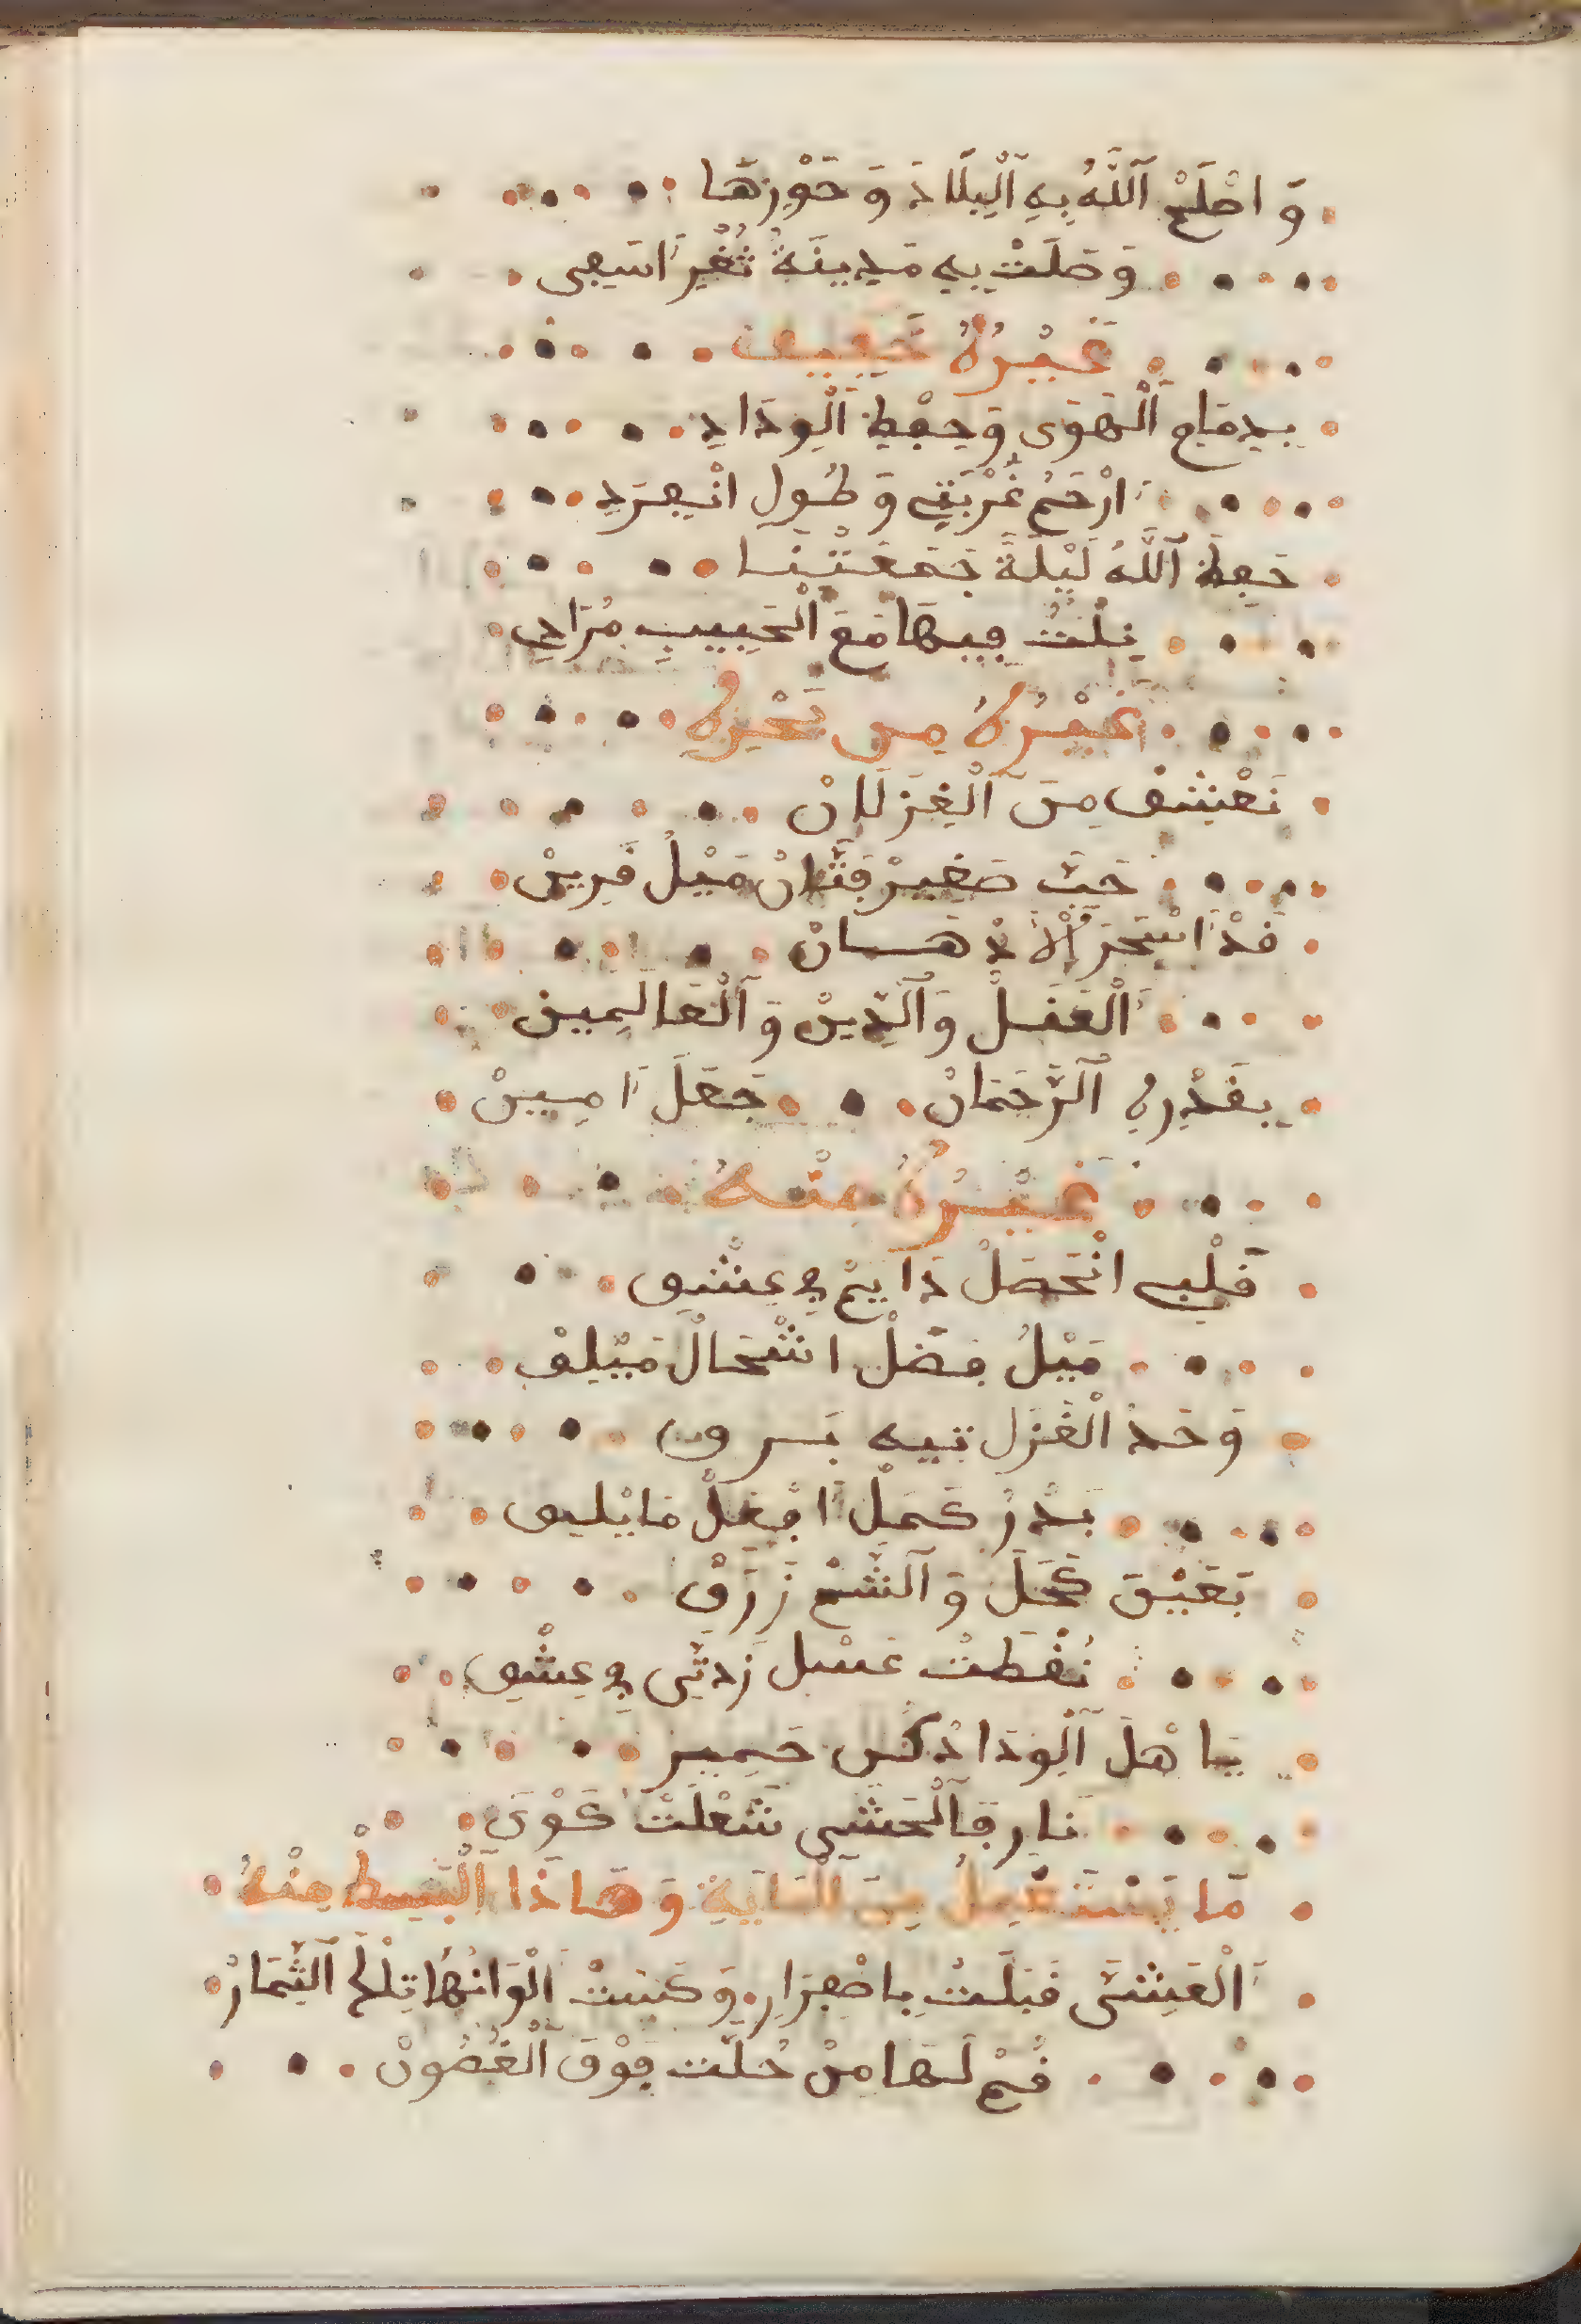 وَاصْلَحْ اَللَّهُ بِهِ اَلْبِلَادَ وَحَوْزِهَا
وَصَلَتْ بِهِ مَدِينَةُ ثُغْرَ اسَفِى
غَيْرُهُ خَفِيف
بِدِمَامِ اَلْهَوَى وَحِفْظِ اَلْوِدَادِ
اَرْحَمْ غُرْبَتِي وَطُولِ انْفِرَدِ
حَفِظَ اَللَّهُ لَيْلَةً جَمَعَتْنَا
نِلْتُ فِيهَا مَعَ اَلْحَبِيبِ مُرَادِي
غَيْرُهُ مِن بَحْرِهِ
نَعْشَقْ مِنَ اَلْغِزَلَانْ
حَبَّ صَغِيرْ فَتَّانْ مَيْلُ قَرِينْ
قَدْ اَسْحَرَ اَلْأَذْهَانْ
اَلْعَقَلْ وَاَلدِّينْ وَاَلْعَالَمِين
بِقَدْرِهِ اَلرَّحْمَانْ جَعَلَ اَمِينْ
غَيْرُهُ مِنْهُ
قَلْبِي انْحَصَلْ دَايِمْ فِي عِشْقِ
مَيْلُ فَضَلْ اشْحَالْ مَيْلِقْ
وَحَدْ الْغَزَل تِيه بَسرق
بَدْرُ كَمَلْ اَفْعَلْ مَايْلِيق
بَعَيْنَ كَحَلَ وَاَلشَّعْ زَرَقْ
نُقْطَتْ عَسْل زَدْتَنِي فِي عِشْقِ
يَا هْلَ اَلْوِدَادْ كُن حَمِير
نَارِ فَاَلْحَشِى شَعْلَتْ كَوْىَ
مَا يَسْتَعْمِلُ مِنَ الْمَايَةِ وَهَاذَا اَلْبَسِيطْ مِنْهُ
اَلْعَشِيَّى قَبَلَتْ بِاصْفِرَارِ وَكَسَتْ اَلْوَانُهَا تِلْكَ اَلثِّمَارْ
قُمْ لَهَا مِنْ حُلَّت فَوْقَ اَلْغُصُونْ